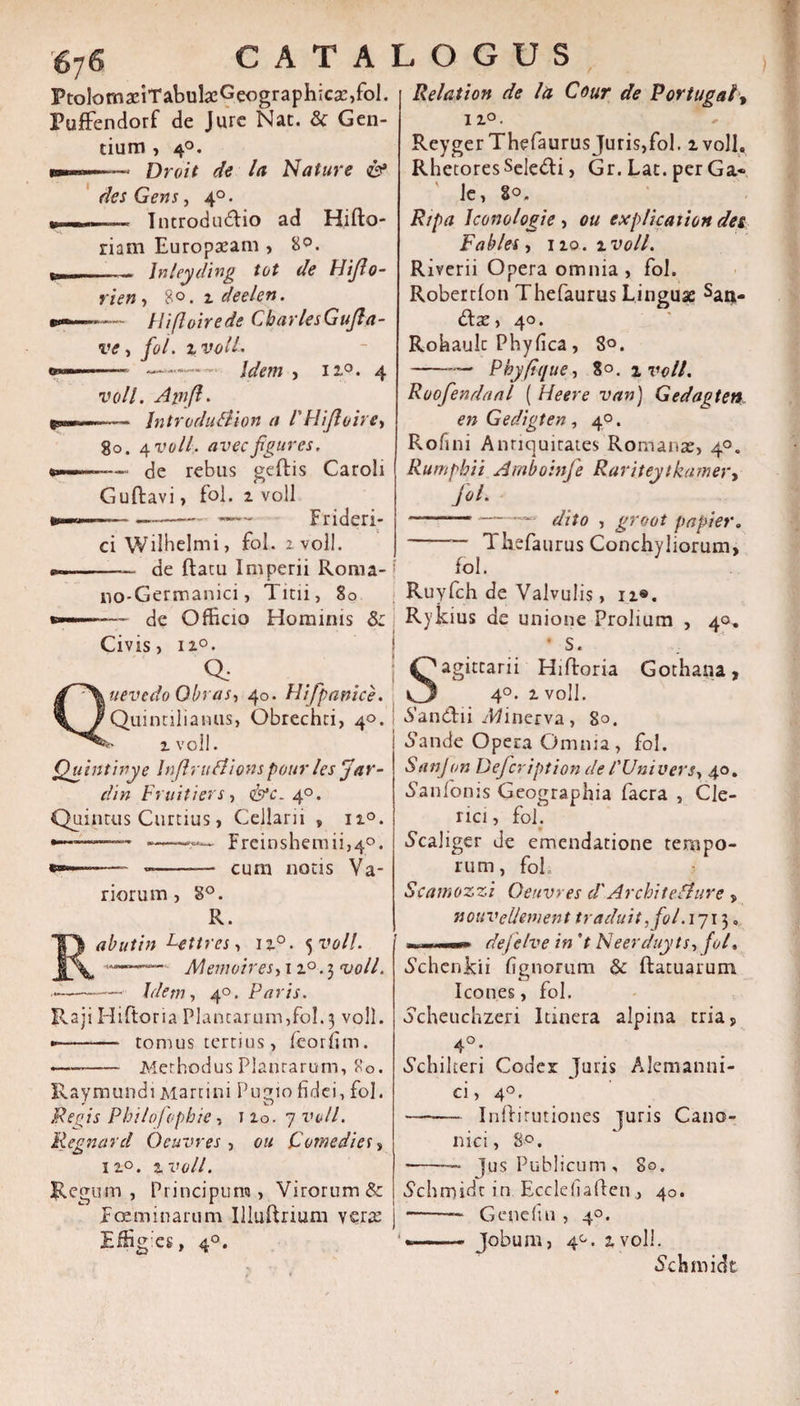 676 CATALOGUS
PtolomæiTabulæGeographicæ,fol.
Puffendorf de Jure Nat. & Gen-
tium , 4°.
——— Droit de la Nature &
des Gens, 4°.
——— Introductio ad Histo-
riam Europæam , 8°.
——— Inleyding tot de Histo-
rien, 8°. 2 deelen.
——— Histoirede CharlesGusta-
ve, fol. 2 voll.
——— ——— Idem , 12°. 4
voll. Amst.
——— Introduction a l'Histoire,
8o. 4 voll. avec figures.
——— de rebus gestis Caroli
Gustavi, fol. 2 voll
——— ——— —— Frideri-
ci Wilhelmi, fol. 2 voll.
——— de statu Imperii Roma-
no-Germanici, Titii, 8o
——— de Officio Hominis &
Civis, 12°.
Q.
Quevedo Obras, 4o. Hispanicè.
Quintilianus, Obrechti, 4°.
2 voll.
Quintinye Instructions pour les Jar-
din Fruitiers, &c. 4°.
Quintus Curtius, Cellarii , 12°.
——— ——— Freinshemii,4°.
——— ——— cum notis Va-
riorum, 8°.
R.
Rabutin Lettres, 12°. 5 voll.
——— Memoires,12°.3 voll.
——— Idem, 4°. Paris.
Raji Historia Plantarum,fol.3 voll.
——— tomus tertius, seorsim.
——— Methodus Plantarum, 8o.
Raymundi Martini Pugio fidei, fol.
Regis Philosophie, 12o. 7 voll.
Regnard Oeuvres , ou Comedies,
12°. 2 voll.
Regum , Principum , Virorum &
Fœminarum Illustrium veræ
Effigies, 4°.
Relation de la Cour de Portugal,
12°.
Reyger Thesaurus Juris,fol. 2 voll.
Rhetores Selecti, Gr. Lat. per Ga-
le, 8°.
Ripa Iconologie , ou explication des
Fables, 12o. 2 voll.
Riverii Opera omnia , fol.
Robertson Thesaurus Linguæ San-
ctæ, 4°.
Rohault Physica, 8°.
——— Physique, 8°. 2 voll.
Roosendaal ( Heere van) Gedagten
en Gedigten, 4°.
Rosini Antiquitates Romanæ, 4°.
Rumphii Amboinse Rariteytkamer,
fol.
——— ——— dito , groot papier.
——— Thesaurus Conchyliorum,
fol.
Ruysch de Valvulis, 12°.
Rykius de unione Prolium , 4°.
S.
Sagittarii Historia Gothana,
4°. 2 voll.
Sanctii Minerva, 8o.
Sande Opera Omnia, fol.
Sanson Description de l'Univers, 4o.
Sansonis Geographia sacra , Cle-
rici, fol.
Scaliger de emendatione tempo-
rum, fol.
Scamozzi Oeuvres d'Architecture ,
nouvellement traduit,fol.1713.
——— deselve in 't Neerduyts, fol.
Schenkii signorum & statuarum
Icones, fol.
Scheuchzeri Itinera alpina tria,
4°.
Schilteri Codex Juris Alemanni-
ci, 4°.
——— Institutiones Juris Cano-
nici, 8°.
——— Jus Publicum, 8o.
Schmidt in Ecclesiasten, 4o.
——— Genesin , 4°.
——— Jobum, 4°. 2 voll.
Schmidt